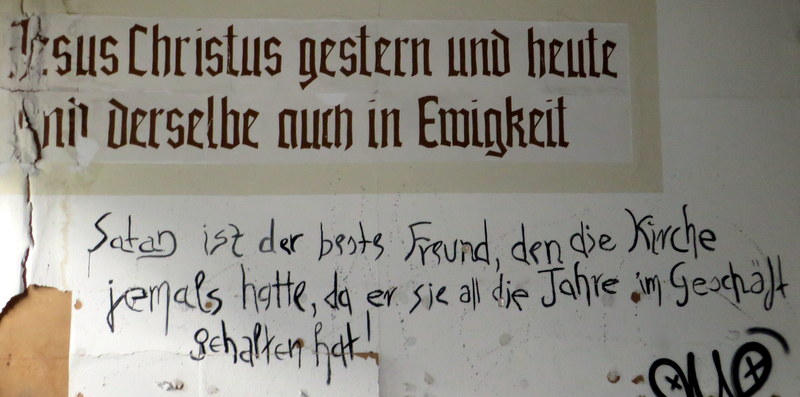 Jesus Christus gestern und heute
und derselbe auch in Ewigkeit
Satan ist der beste Freund, den die Kirche
jemals hatte, da er sie all die Jahre im Geschäft
gehalten hat!